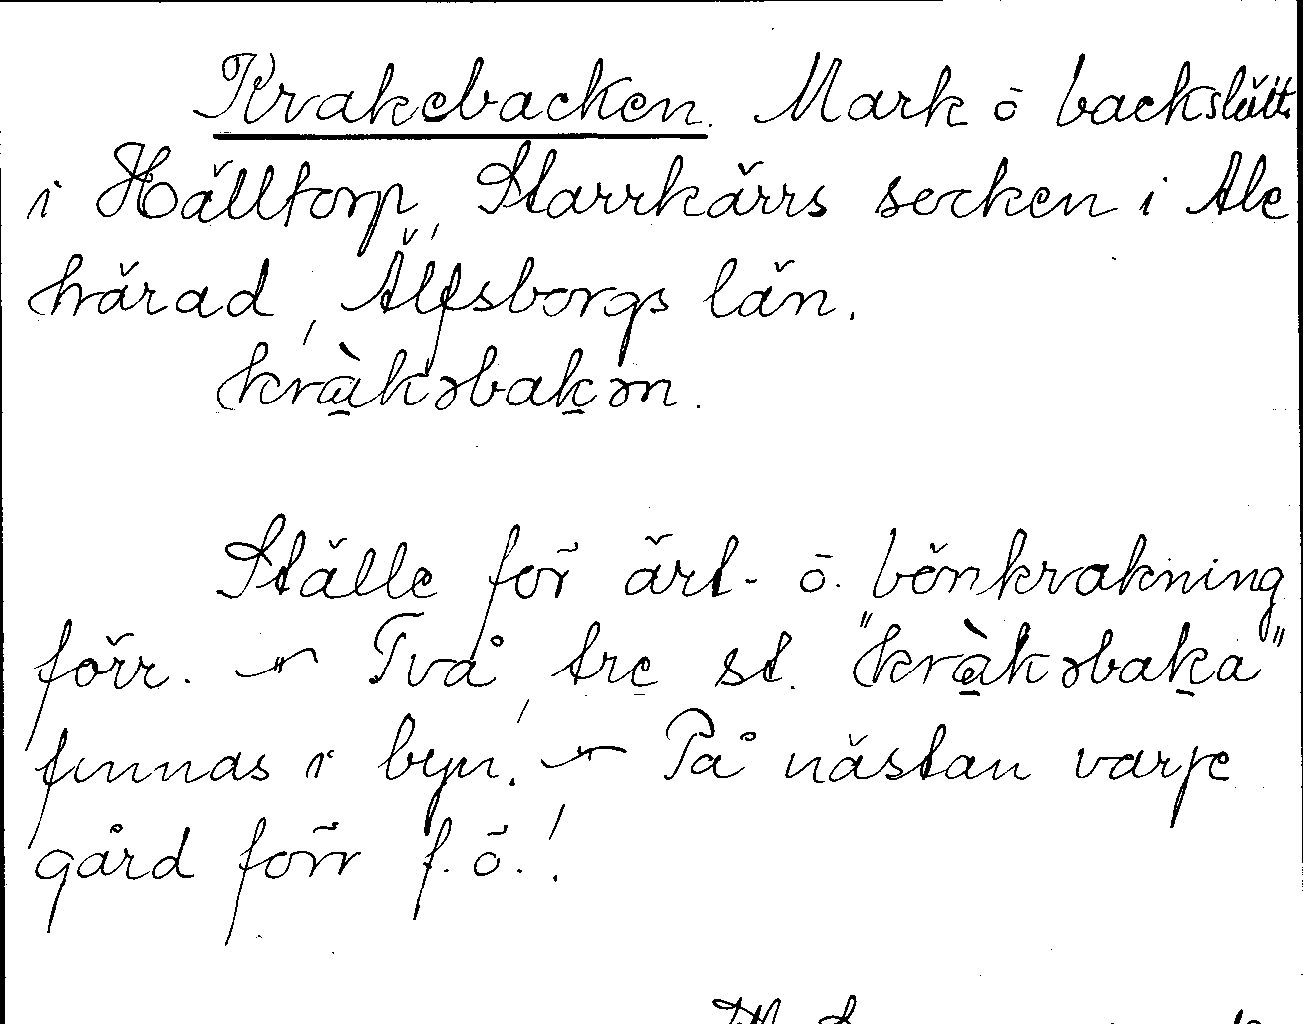 Krakebacken. Mark ō backslätt
i Hälltorp, Starrkärrs socken i Ale
härad, Älfsborgs län.
kràkəbakən.
Ställe för ärt- ō. bönkrakning
förr. — Två, tre st. "kràkəbaka"
finnas i byn. — På nästan varje
gård förr f. ö.!